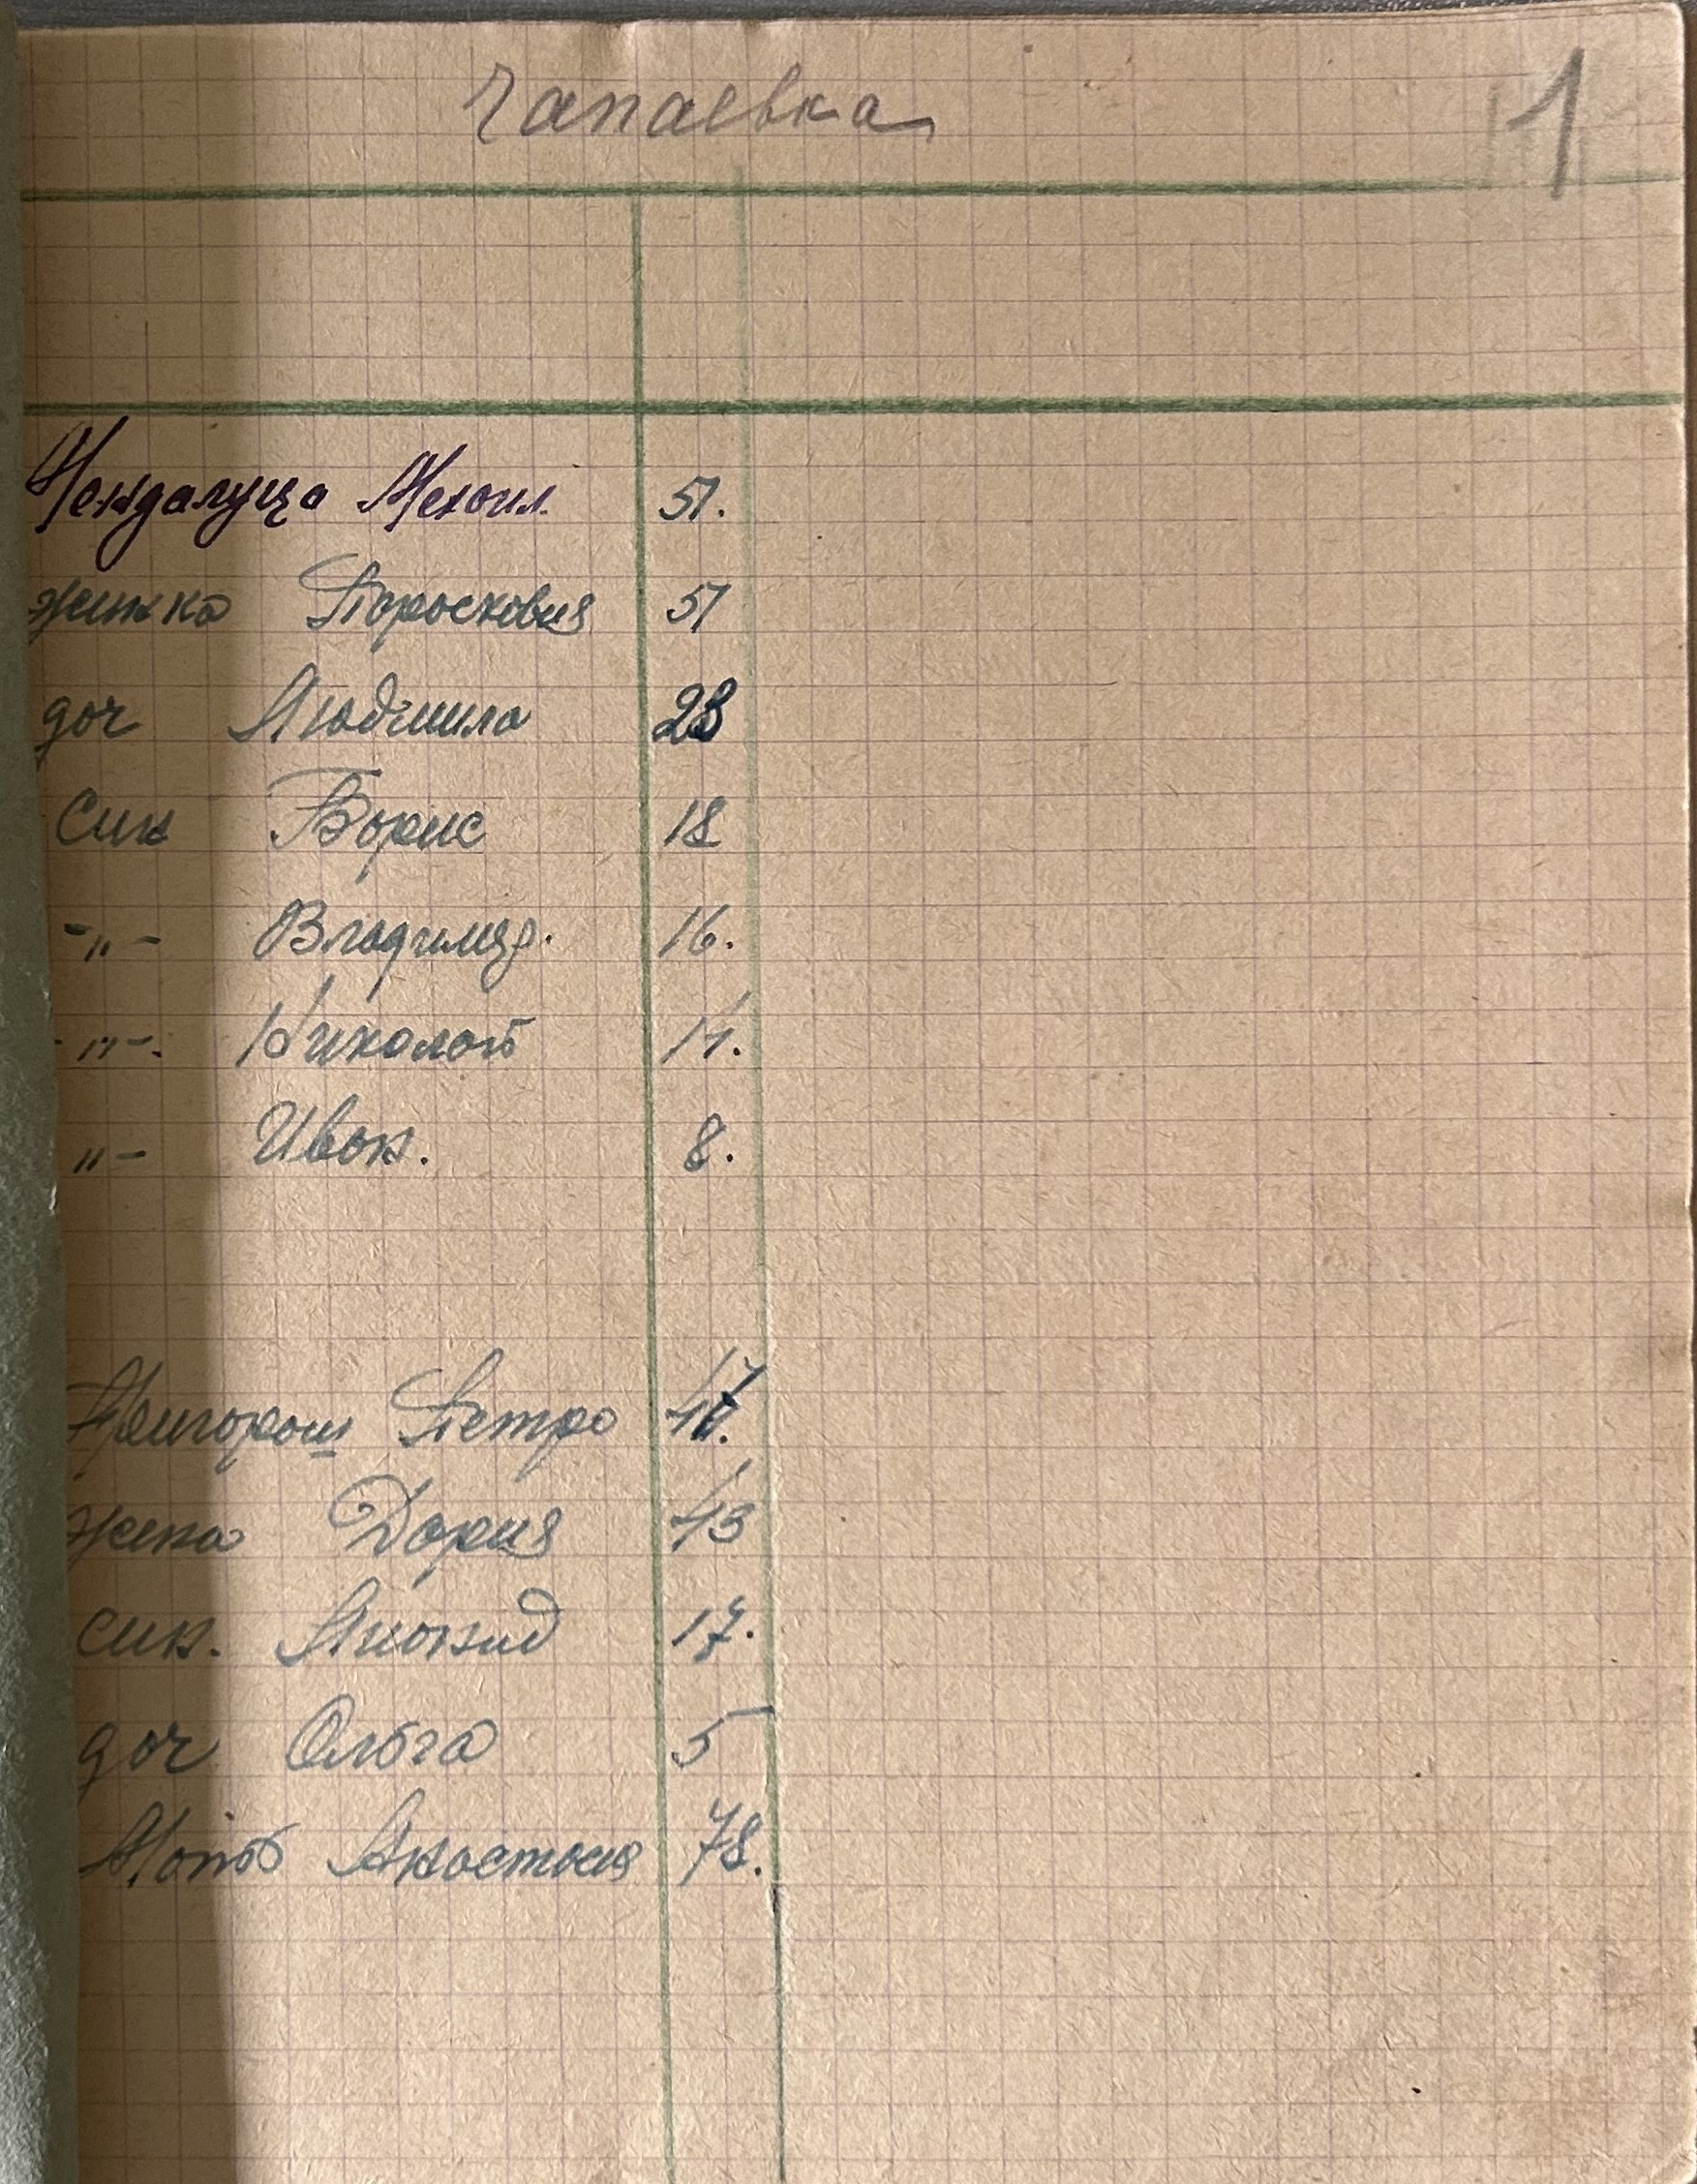 Чапаевка
1
Мендалуца Мехаил. 51.
жинка Парасковия 51
доч Людмила 28
Син Борис 18
-"- Владимир. 16.
-"-. Николай 14.
"- Иван. 8.
Григораш Петро 47.
жена Дария 43
син. Лионид 17.
доч Ольга 5
Мать Анастасия 78.